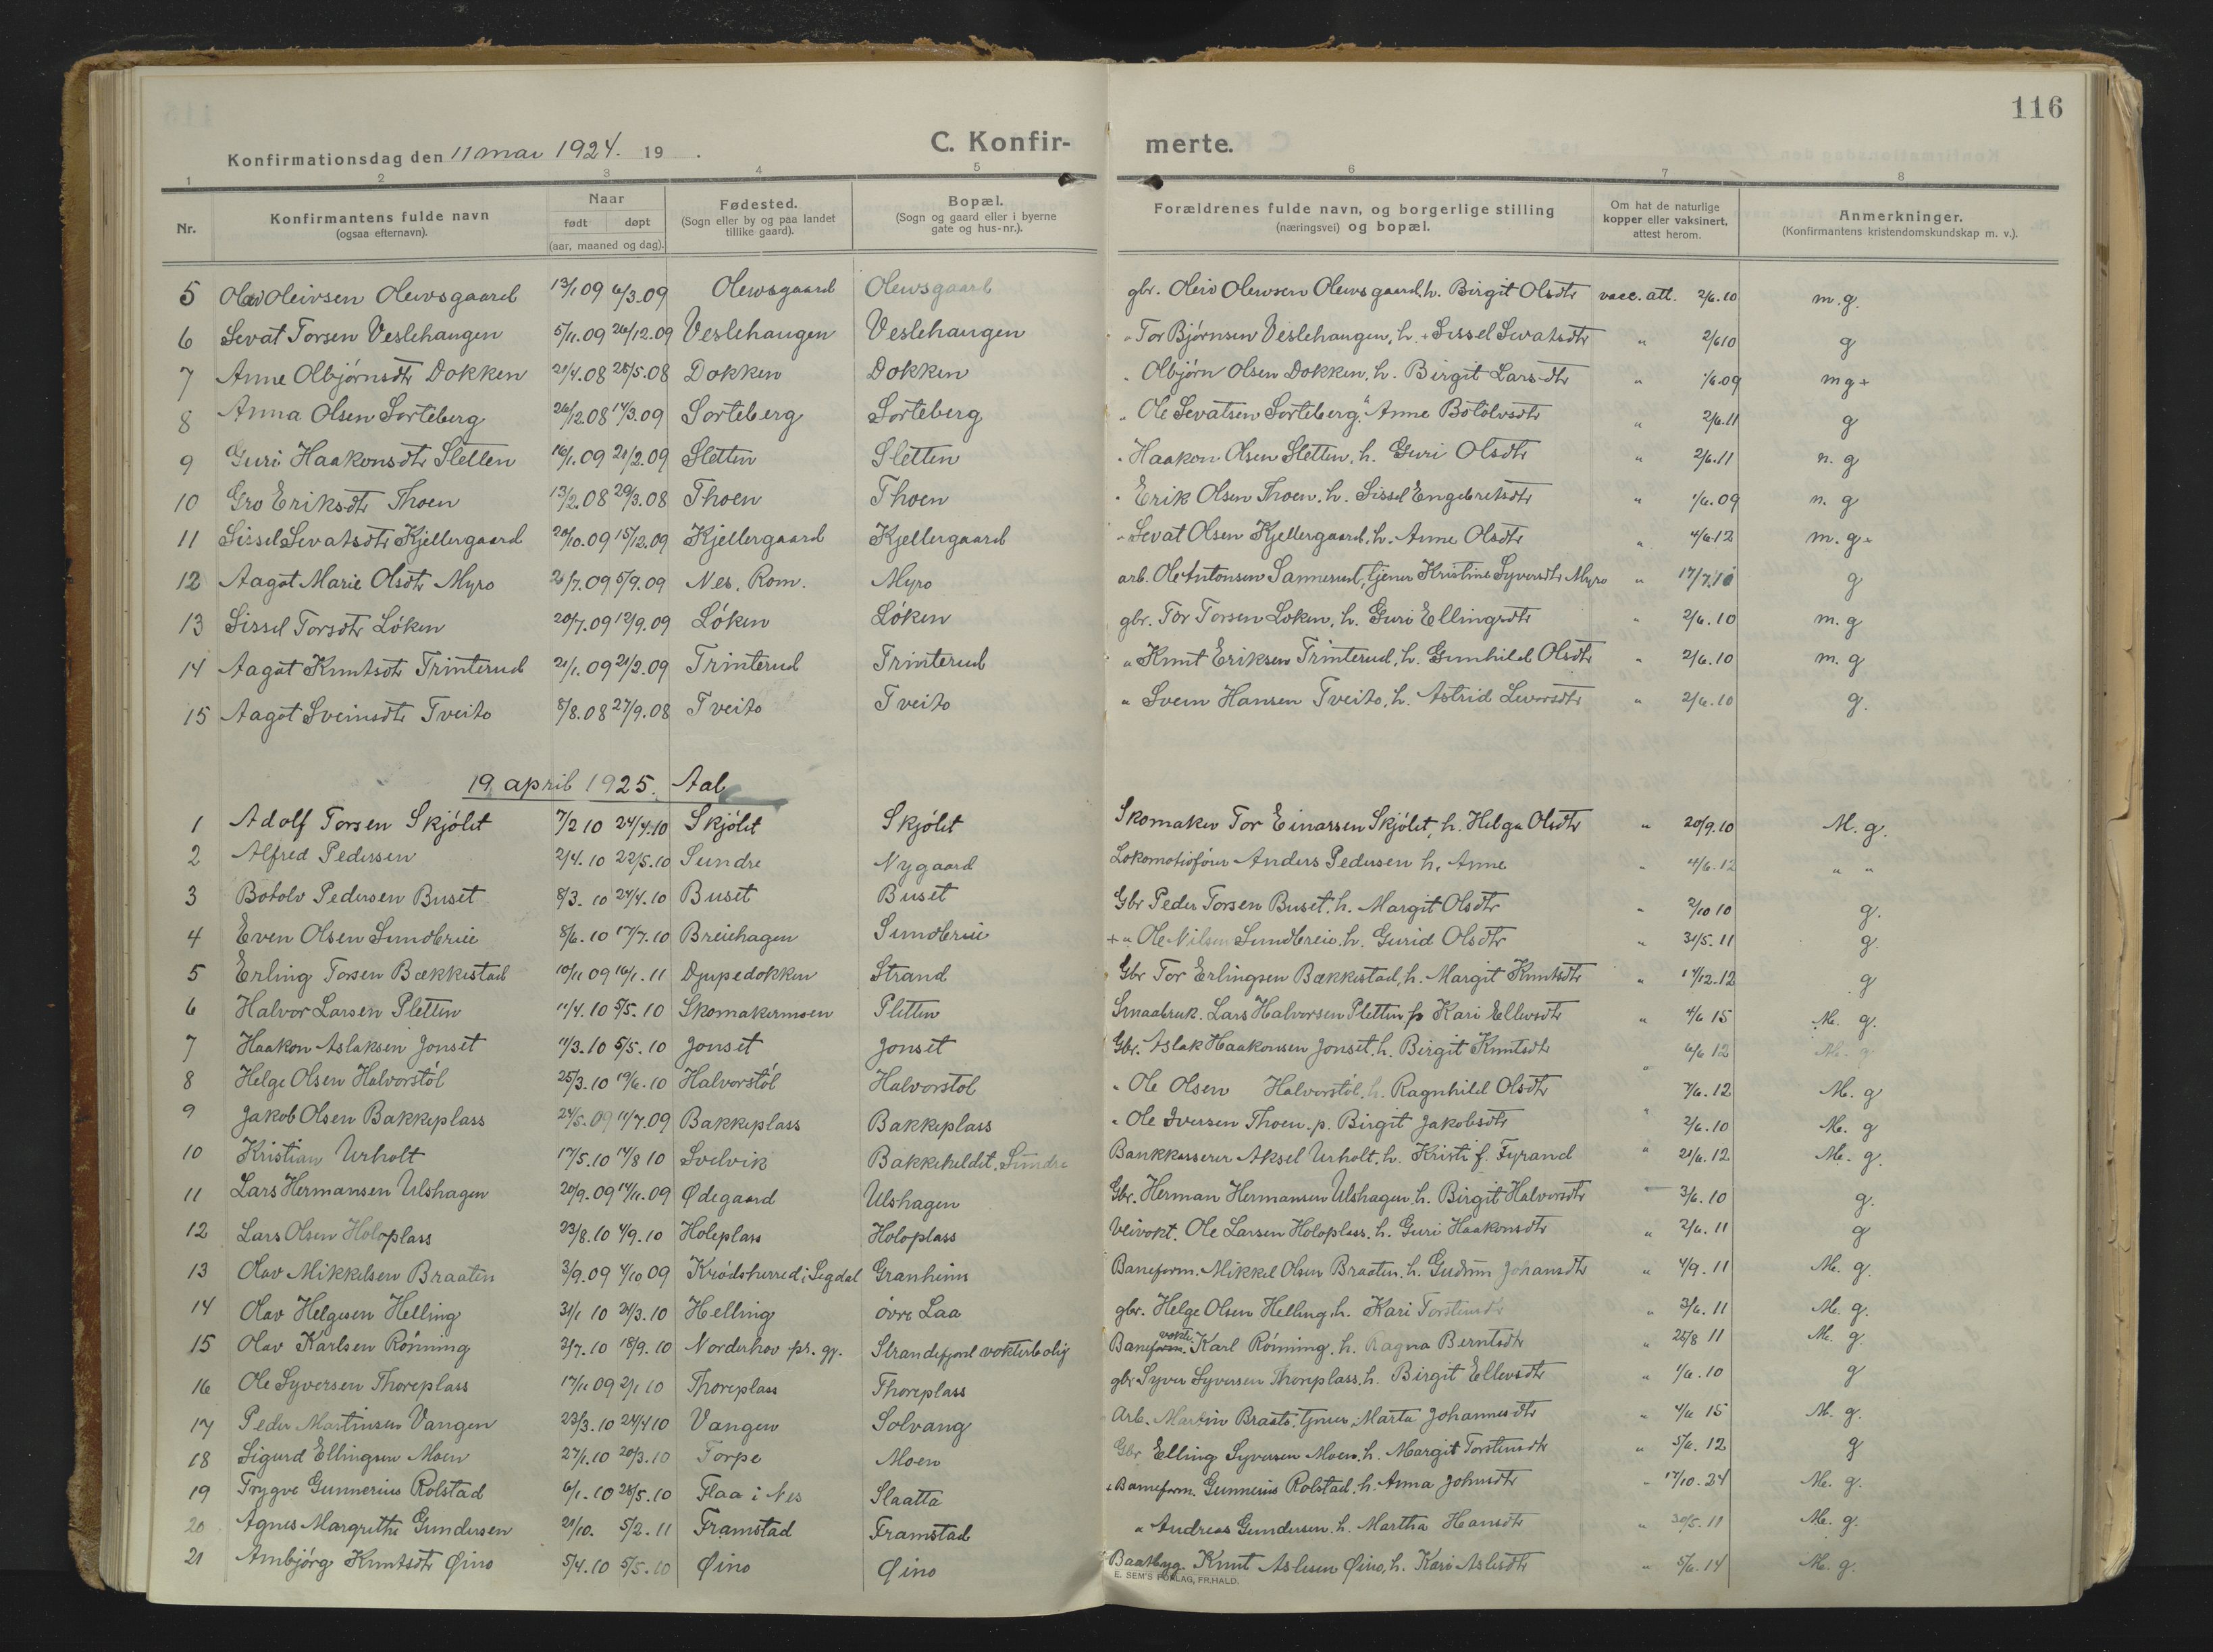 116
Konfirmationsdag den 11 mai 1924. 19 .
C. Konfir- merte.
1 2 3 4 5 6 7 8
Nr.
Konfirmantens fulde navn
(ogsaa efternavn).
Naar
født døpt
(aar, maaned og dag).
Fødested.
(Sogn eller by og paa landet
tillike gaard).
Bopæl.
(Sogn og gaard eller i byerne
gate og hus-nr.).
Forældrenes fulde navn, og borgerlige stilling
(næringsvei) og bopæl.
Om hat de naturlige
kopper eller vaksinert,
attest herom.
Anmerkninger.
(Konfirmantens kristendomskundskap m. v.).
5 Oleivsen Oleivsgaard 13/1 09 6/3.09 Oleivsgaard Oleivsgaard gbr. Oleiv Oleivsen Oleivsgaard, h. Birgit Olsdtr vacc. att. 2/6.10 m.g.
6 Sevat Torsen Veslehaugen 5/11.09 26/12.09 Veslehaugen Veslehaugen " Tor Bjørnsen Veslehaugen, h. + Sissel Sevatsdtr " 2/6 10 g
7 Anne Olbjørnsdtr Dokken 21/4.08 28/5.08 Dokken Dokken " Olbjørn Olsen Dokken, h. Birgit Larsdtr " 1/6.09 mg+
8 Anna Olsen Sorteberg 26/12.08 14/3.09 Sorteberg Sorteberg " Ole Sevatsen Sorteberg, " Anne Botolvsdtr " 2/6.11 g
9 Guri Haakonsdtr Sletten 16/1.09 21/2.09 Sletten Sletten " Haakon Olsen Sletten, h. Guri Olsdtr " 2/6.11 n. g
10 Gro Eriksdtr Thoen 13/2.08 29/3.08 Thoen Thoen " Erik Olsen Thoen, h. Sissel Engebretsdtr " 1/6.09 n. g
11 Sissel Sevatsdtr Kjellergaard 20/10.09 15/12.09 Kjellergaard Kjellergaard " Sevat Olsen Kjellergaard, h. Anne Olsdtr " 4/6.12 m. g.
12 Aagot Marie Olsdtr Myro 2/7.09 5/9.09 Nes, Rom. Myro arb. Ole Antonsen Sannerud, tjener Kristine Syversdtr Myro " 17/7.10 g
13 Sissel Torsdtr Løken 20/7.09 12/9.09 Løken Løken gbr. Tor Torsen Løken, h. Guri Ellingsdtr " 2/6.10 m. g
14 Aagot Knutsdtr Trinterud 21/1.09 21/2.09 Trinterud Trinterud " Knut Eriksen Trinterud, h. Gunhild Olsdtr " 2/6.10 m. g
15 Aagot Sveinsdtr Tveito 8/8.08 27/9.08 Tveito Tveito " Svein Hansen Tveito, h. Astrid Levorsdtr " 2/6.10 g.
19 april 1925. Aal
1 Adolf Torsen Skjølet 7/2 10 24/4.10 Skjølet Skjølet Skomaker Tor Einarsen Skjølet, h. Helga Olsdtr " 20/9.10 M. g.
2 Alfred Pedersen 2/4.10 22/5.10 Sundre Nygaard Lokomotivfører Anders Pedersen h. Anne " 4/6.12 " "
3 Botolv Pedersen Buset 8/3. 10 24/4.10 Buset Buset Gbr Peder Torsen Buset. h. Margit Olsdtr " 2/10 10 g.
4 Even Olsen Sundbreie 8/6.10 17/7.10 Breiehagen Sundbreie + " Ole Nilsen Sundbreie. h. Gurid Olsdtr " 31/5.11 g.
5 Erling Torsen Bækkestad 10/11 09 16/1.11 Djupedokken Strand Gbr Tor Erlingsen Bækkestad, h. Margit Knutsdtr " 14/12.12 g
6 Halvor Larsen Pletten 11/4.10 5/5.10 Skomakermoen Pletten Smaabruk. Lars Halvorsen Pletten p Kari Ellevsdtr " 4/6 15 M. g.
7 Haakon Aslaksen Jonset 11/3.10 5/5.10 Jonset Jonset Gbr. Aslak Haakonsen Jonset, h. Birgit Knutsdtr " 6/6 12 M. g.
8 Helge Olsen Halvorstøl 25/3.10 19/6.10 Halvorstøl Halvorstøl " Ole Olsen Halvorstøl, h. Ragnhild Olsdtr " 7/6.12 M. g
9 Jakob Olsen Bakkeplass 24/5.09 11/7.09 Bakkeplass Bakkeplass " Ole Iversen Thoen. p. Birgit Jakobsdtr " 2/6.10 M. g
10 Kristian Urholt 17/5.10 14/8 10 Svelvik Bakkeheldet, Sundre Bankkasserer Aksel Urholt, h. Kristi f. Fyrand " 21/6.12 M. g.
11 Lars Hermansen Ulshagen 20/9.09 14/11.09 Ødegaard Ulshagen Gbr. Herman Hermansen Ulshagen h. Birgit Halvorsdtr " 3/6.10 g.
12 Lars Olsen Holoplass 23/8.10 4/9.10 Holeplass Holoplass Veivokt. Ole Larsen Holoplass. h. Guri Haakonsdtr " 2/6.11 g
13 Olav Mikkelsen Braaten 3/9.09 4/10 09 Krødsherred i Sigdal Granheim Baneform. Mikkel Olsen Braaten. h. Gudrun Johansdtr " 4/9.11 M. g.
14 Olav Helgesen Helling 31/1 10 24/3.10 Helling øvre Laa gbr. Helge Olsen Helling, h. Kari Torstensdtr " 3/6.11 M. g.
15 Olav Karlsen Rønning 3/7.10 18/9.10 Norderhov pr. gj. Strandefjord vokterbolig Baneform. vokt. Karl Rønning. h. Ragna Berntsdtr " 25/8 11 M. g.
16 Ole Syversen Thoreplass 17/11 09 2/1 10 Thoreplass Thoreplass gbr Syver Syversen Thoreplass, h. Birgit Ellevsdtr " 1/6.10 g
17 Peder Martinsen Vangen 23/3.10 24/4 10 Vangen Solvang Arb. Martin Braate, tjener, Marta Johannesdtr " 4/6 15 M. g.
18 Sigurd Ellingsen Moen 27/1.10 20/3.10 Torpe Moen Gbr. Elling Syversen Moen. h. Margit Torstensdtr " 5/6.12 g
19 Trygve Gunnerius Rolstad 6/1.10 28/5.10 Flaa i Nes Slaatta Baneform. Gunnerius Rolstad. h. Anna Johnsdtr " 17/10.24 M. g.
20 Agnes Margrethe Gundersen 21/10. 5/2.11 Framstad Framstad " Andreas Gundersen. h. Martha Hansdtr " 30/5.11 M. g.
21 Ambjørg Knutsdtr Øino 5/4.10 5/5.10 Øino Øino Baatbyg. Knut Aslesen Øino, h. Kari Aslesdtr " 5/6.14 M. g.
E. SEM'S FORLAG, FR.HALD.